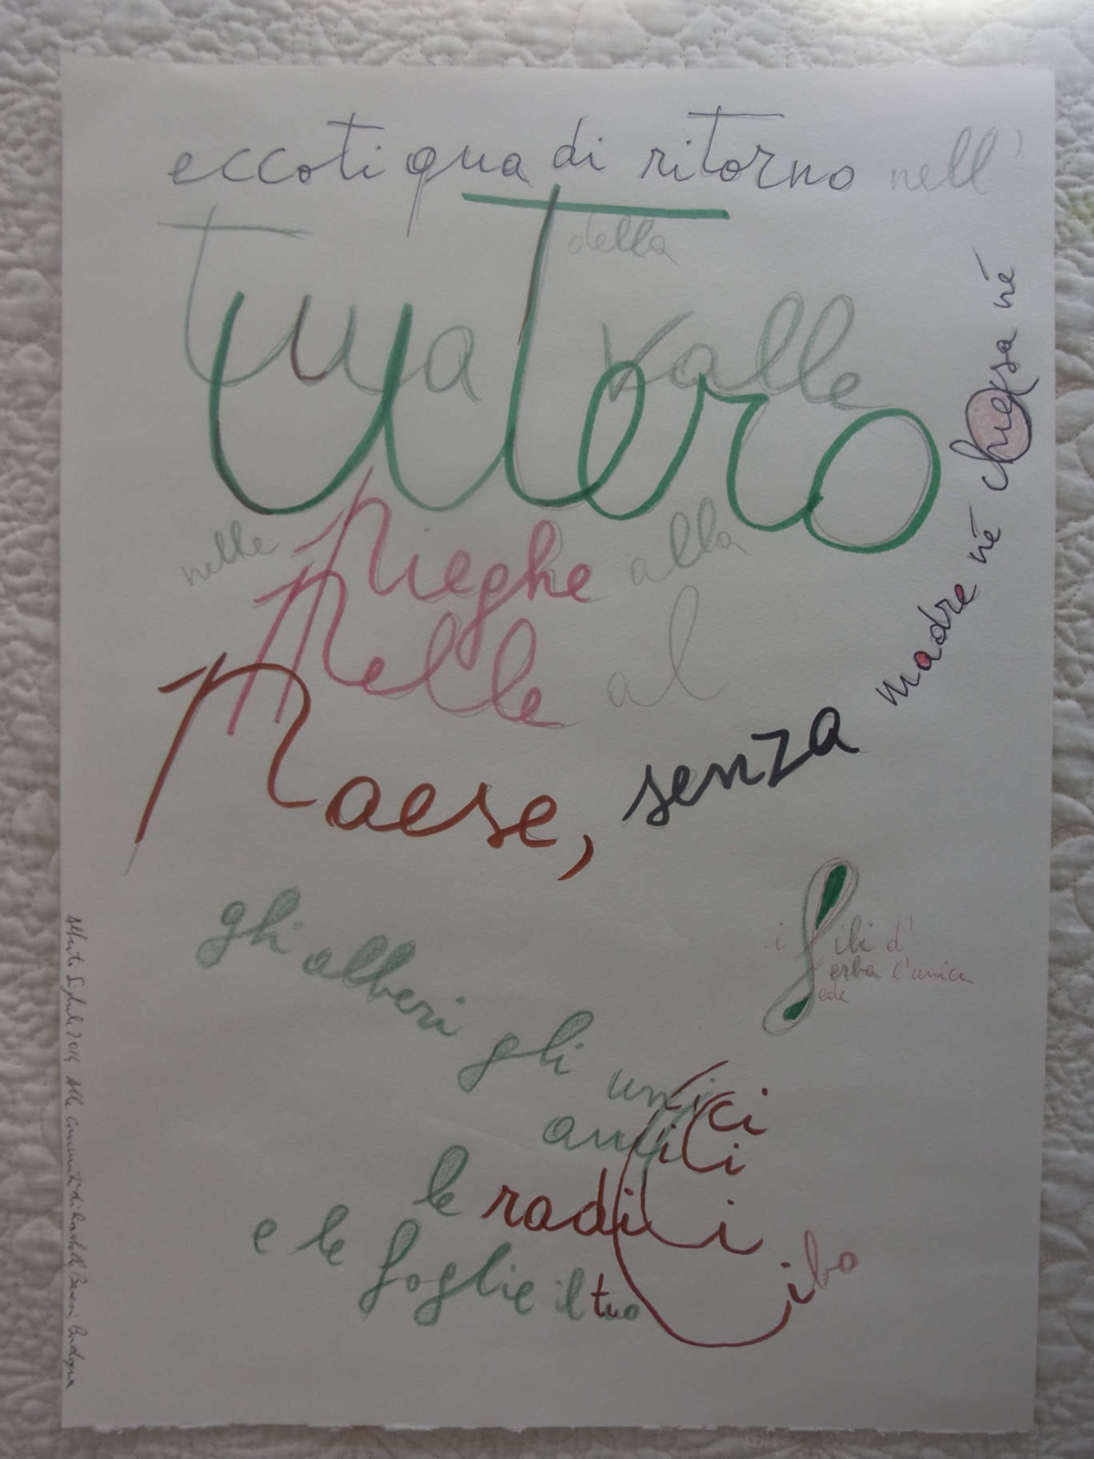 eccoti qua di ritorno nell'
utero
della
tua valle
nelle pieghe alla
pelle al
paese, senza madre nè chiesa nè
i fili d'
erba l'unica
fede
gli alberi gli unici
amici
le radici
e le foglie il tuo cibo